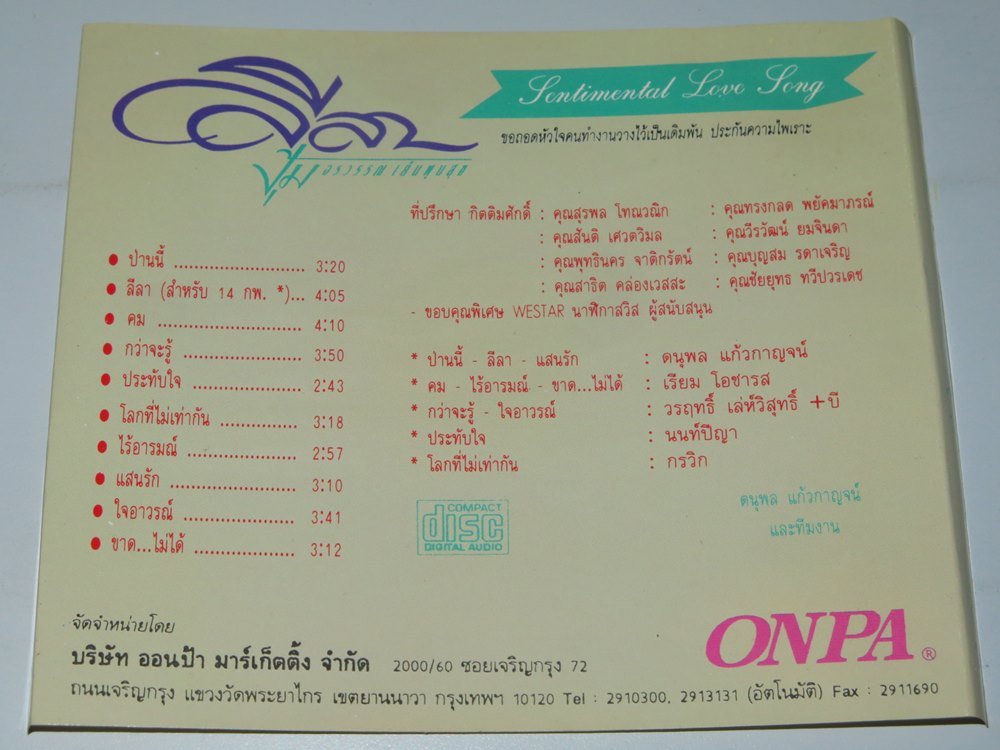 ลีลา
ปุ้ม อรวรรณ เย็นพูนสุข
Sentimental Love Song
ขอถอดหัวใจคนทำงานวางไว้เป็นเดิมพัน ประกันความไพเราะ
ที่ปรึกษา กิตติมศักดิ์ : คุณสุรพล โทณวณิก : คุณทรงกลด พยัคมาภรณ์
: คุณสันติ เศวตวิมล : คุณวีรวัฒน์ ยมจินดา
: คุณพุทธินคร จาติกรัตน์ : คุณบุญสม รดาเจริญ
: คุณสาธิต คล่องเวสสะ : คุณชัยยุทธ ทวีปวรเดช
- ขอบคุณพิเศษ WESTAR นาฬิกาสวิส ผู้สนับสนุน
● ป่านนี้ ........................ 3:20
● ลีลา (สำหรับ 14 กพ. *)... 4:05
● คม ........................ 4:10
● กว่าจะรู้ ........................ 3:50
● ประทับใจ ........................ 2:43
● โลกที่ไม่เท่ากัน ........................ 3:18
● ไร้อารมณ์ ........................ 2:57
● แสนรัก ........................ 3:10
● ใจอาวรณ์ ........................ 3:41
● ขาด...ไม่ได้ ........................ 3:12
* ป่านนี้ - ลีลา - แสนรัก : ดนุพล แก้วกาญจน์
* คม - ไร้อารมณ์ - ขาด...ไม่ได้ : เรียม โอชารส
* กว่าจะรู้ - ใจอาวรณ์ : วรฤทธิ์ เล่ห์วิสุทธิ์ +บี
* ประทับใจ : นนท์ปีญา
* โลกที่ไม่เท่ากัน : กรวิก
COMPACT
disc
DIGITAL AUDIO
ดนุพล แก้วกาญจน์
และทีมงาน
จัดจำหน่ายโดย
บริษัท ออนป้า มาร์เก็ตติ้ง จำกัด 2000/60 ซอยเจริญกรุง 72
ถนนเจริญกรุง แขวงวัดพระยาไกร เขตยานนาวา กรุงเทพฯ 10120 Tel : 2910300, 2913131 (อัตโนมัติ) Fax : 2911690
ONPA ®